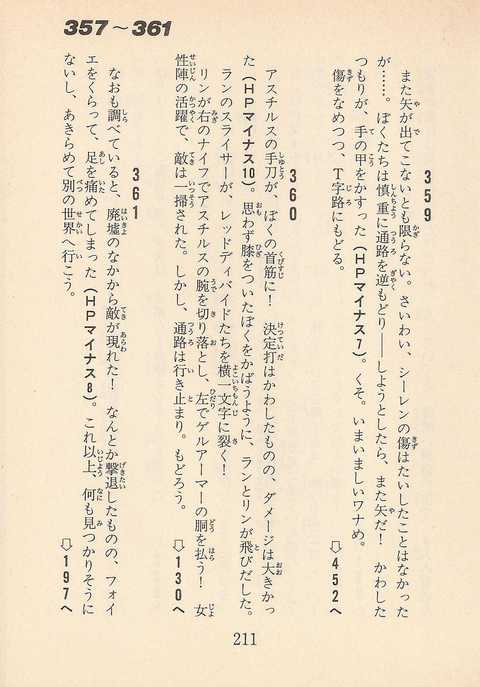 357〜361
359
また矢が出てこないとも限らない。さいわい、シーレンの傷はたいしたことはなかった
が……。ぼくたちは慎重に通路を逆もどり——しようとしたら、また矢だ！　かわした
つもりが、手の甲をかすった（HPマイナス7）。くそ。いまいましいワナめ。
傷をなめつつ、T字路にもどる。
⇨452へ
360
アスチルスの手刀が、ぼくの首筋に！　決定打はかわしたものの、ダメージは大きかっ
た（HPマイナス10）。思わず膝をついたぼくをかばうように、ランとリンが飛びだした。
ランのスライサーが、レッドディバイドたちを横一文字に裂く！
リンが右のナイフでアスチルスの腕を切り落とし、左でゲルアーマーの胴を払う！　女
性陣の活躍で、敵は一掃された。しかし、通路は行き止まり。もどろう。
⇨130へ
361
なおも調べていると、廃墟のなかから敵が現れた！　なんとか撃退したものの、フォイ
エをくらって、足を痛めてしまった（HPマイナス8）。これ以上、何も見つかりそうに
ないし、あきらめて別の世界へ行こう。
⇨197へ
211